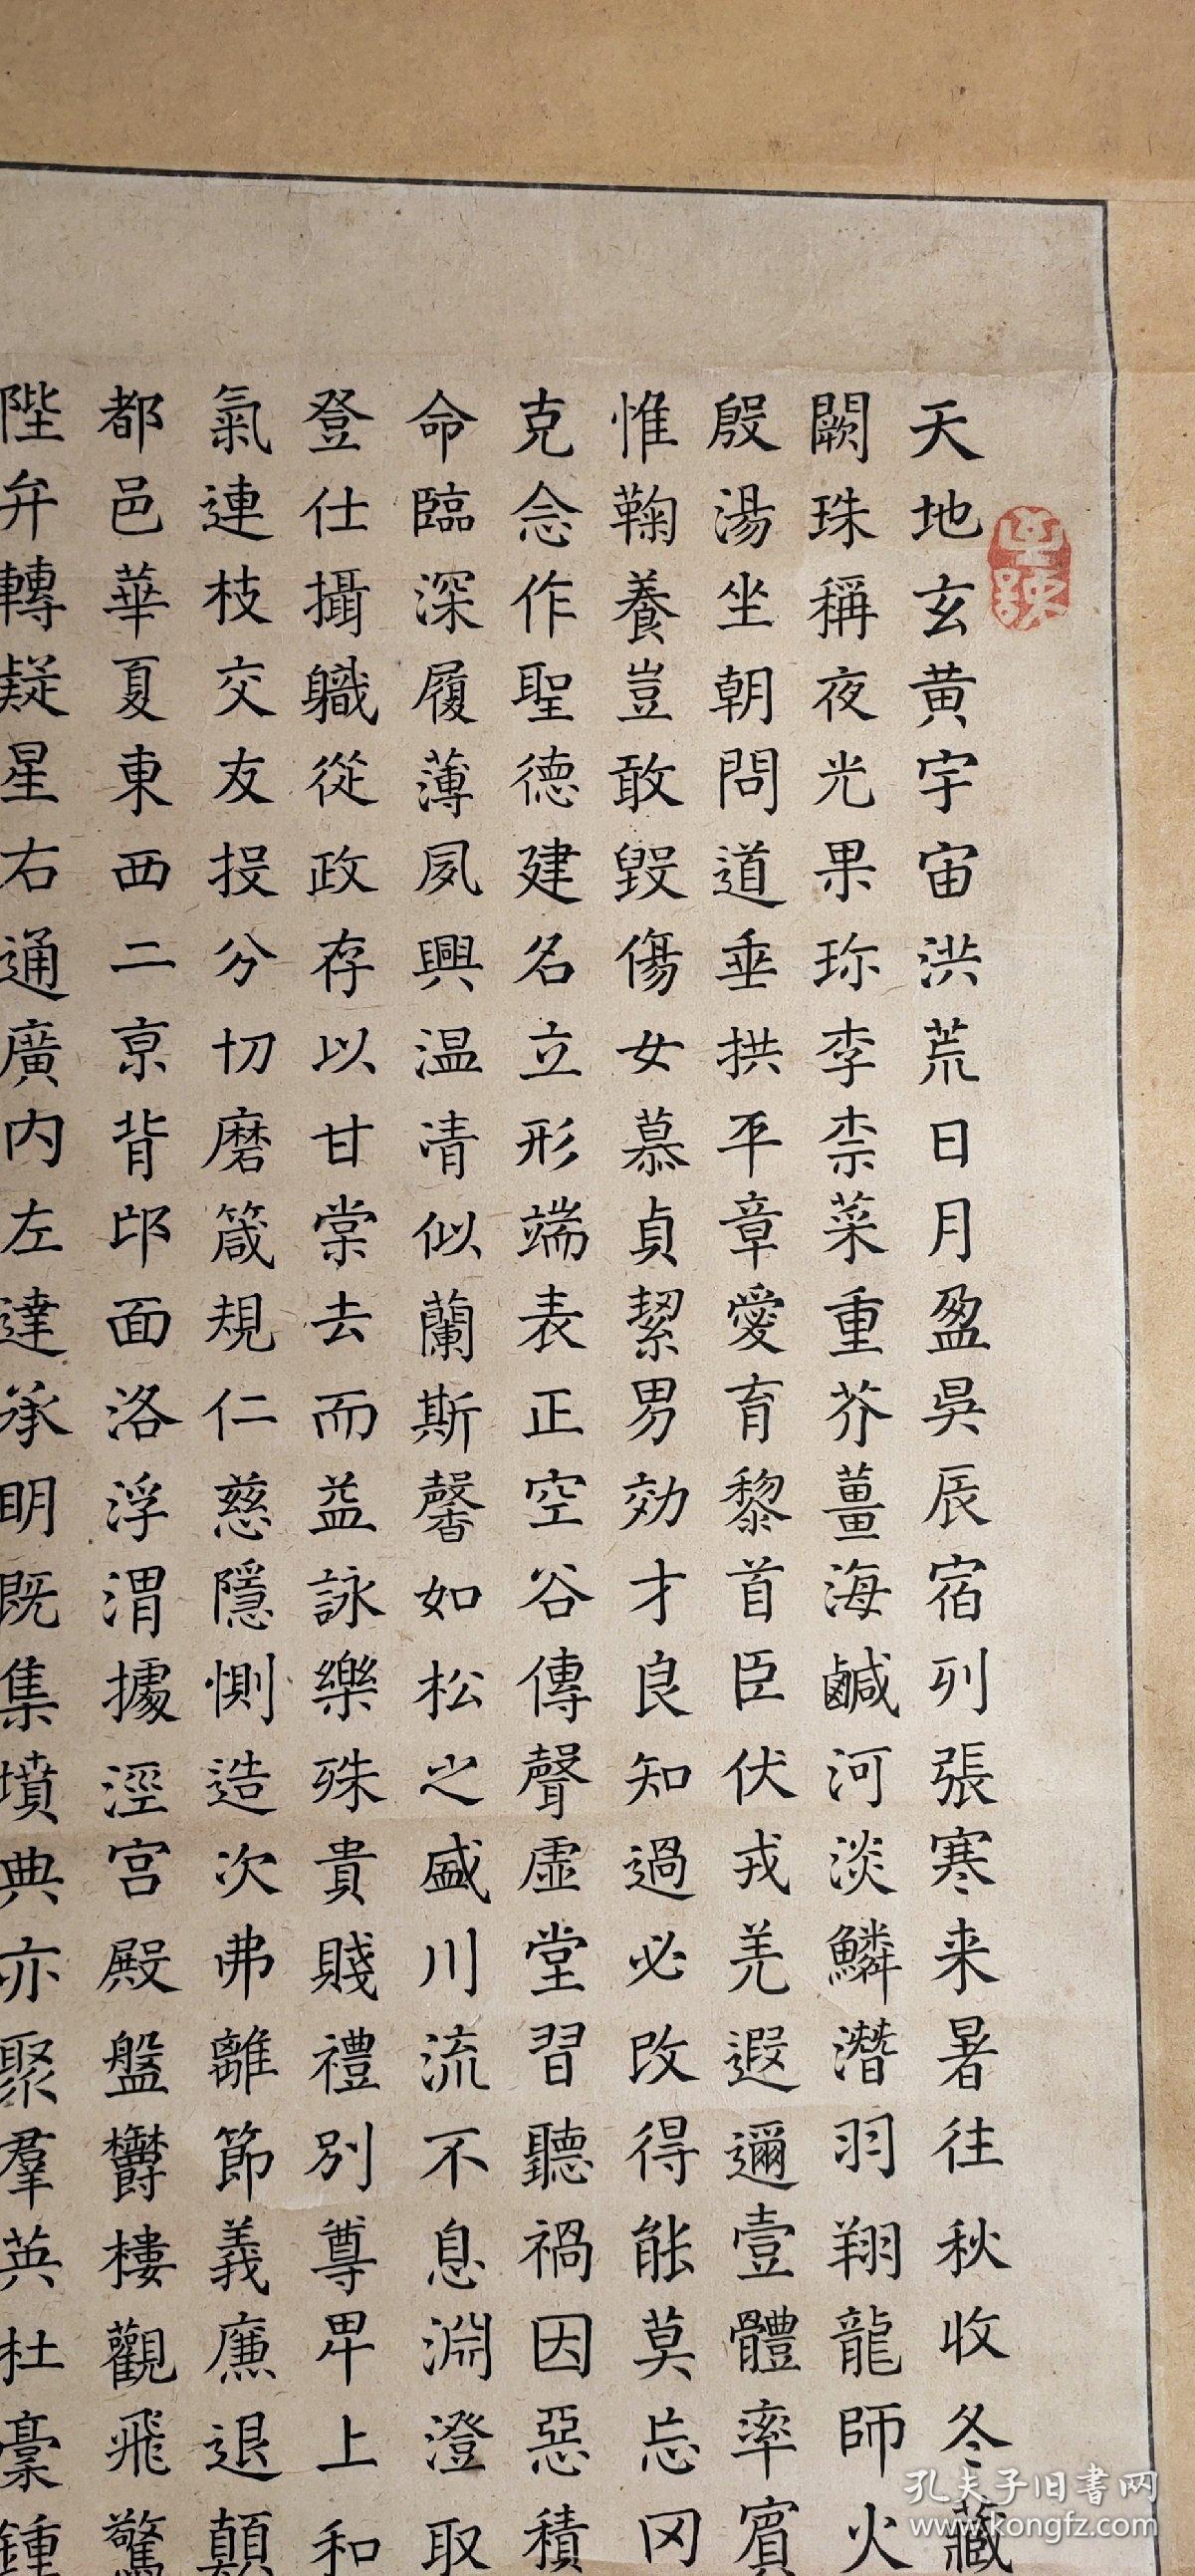 天地玄黄宇宙洪荒日月盈昃辰宿列張寒来暑往秋收冬藏
闕珠稱夜光果珎李柰菜重芥薑海鹹河淡鱗潛羽翔龍師火
殷湯坐朝問道垂拱平章愛育黎首臣伏戎羌遐邇壹體率賓
惟鞠養豈敢毀傷女慕貞絜男効才良知過必改得能莫忘罔
克念作聖德建名立形端表正空谷傳聲虛堂習聽禍因惡積
命臨深履薄夙興温凊似蘭斯馨如松之盛川流不息淵澄取
登仕攝職從政存以甘棠去而益詠樂殊貴賤禮別尊卑上和
氣連枝交友投分切磨箴規仁慈隱惻造次弗離節義廉退顛
都邑華夏東西二京背邙面洛浮渭據涇宮殿盤欝樓觀飛驚
陛弁轉疑星右通廣内左達承明既集墳典亦聚羣英杜稾鍾
孔夫子旧書网
www.kongfz.com